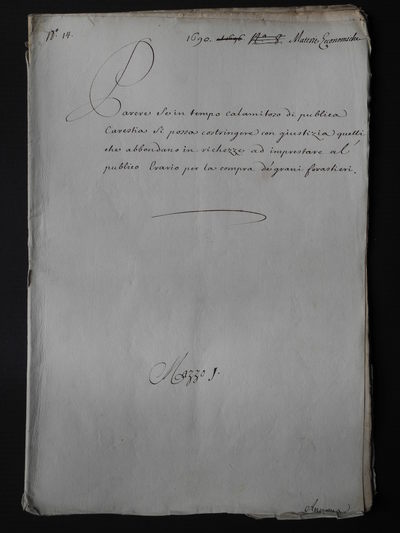 N.° 14.
1690. Materie Economiche
Parere Se in tempo calamitoso di publica
Carestia Si possa costringere con giustizia quelli
che abbondano in richezze ad imprestare al
publico Erario per la compra de' grani forastieri.
Mazzo 1.